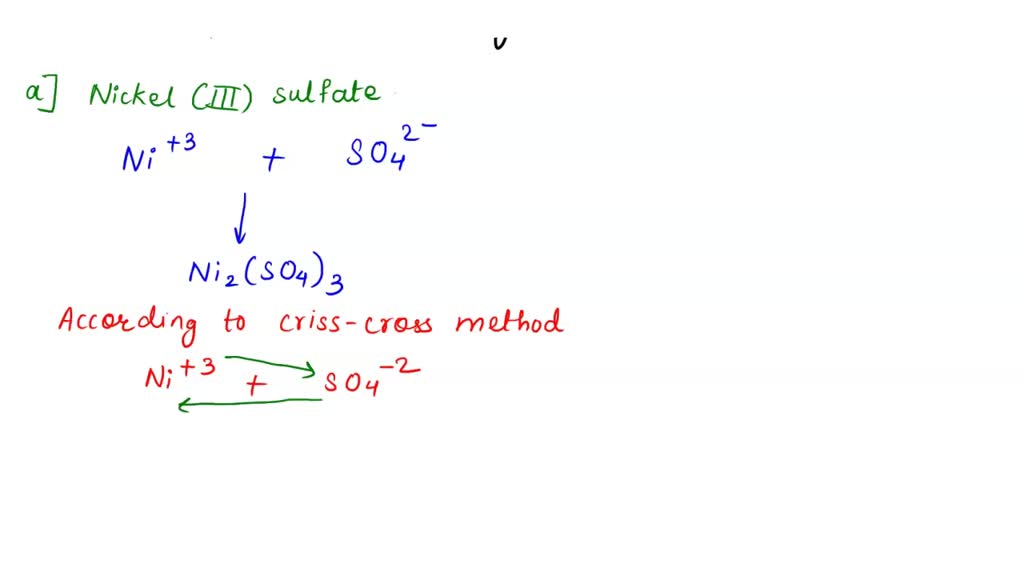 a] Nickel (III) sulfate
Ni⁺³ + SO₄²⁻
Ni₂(SO₄)₃
According to criss-cross method
Ni⁺³ + SO₄⁻²